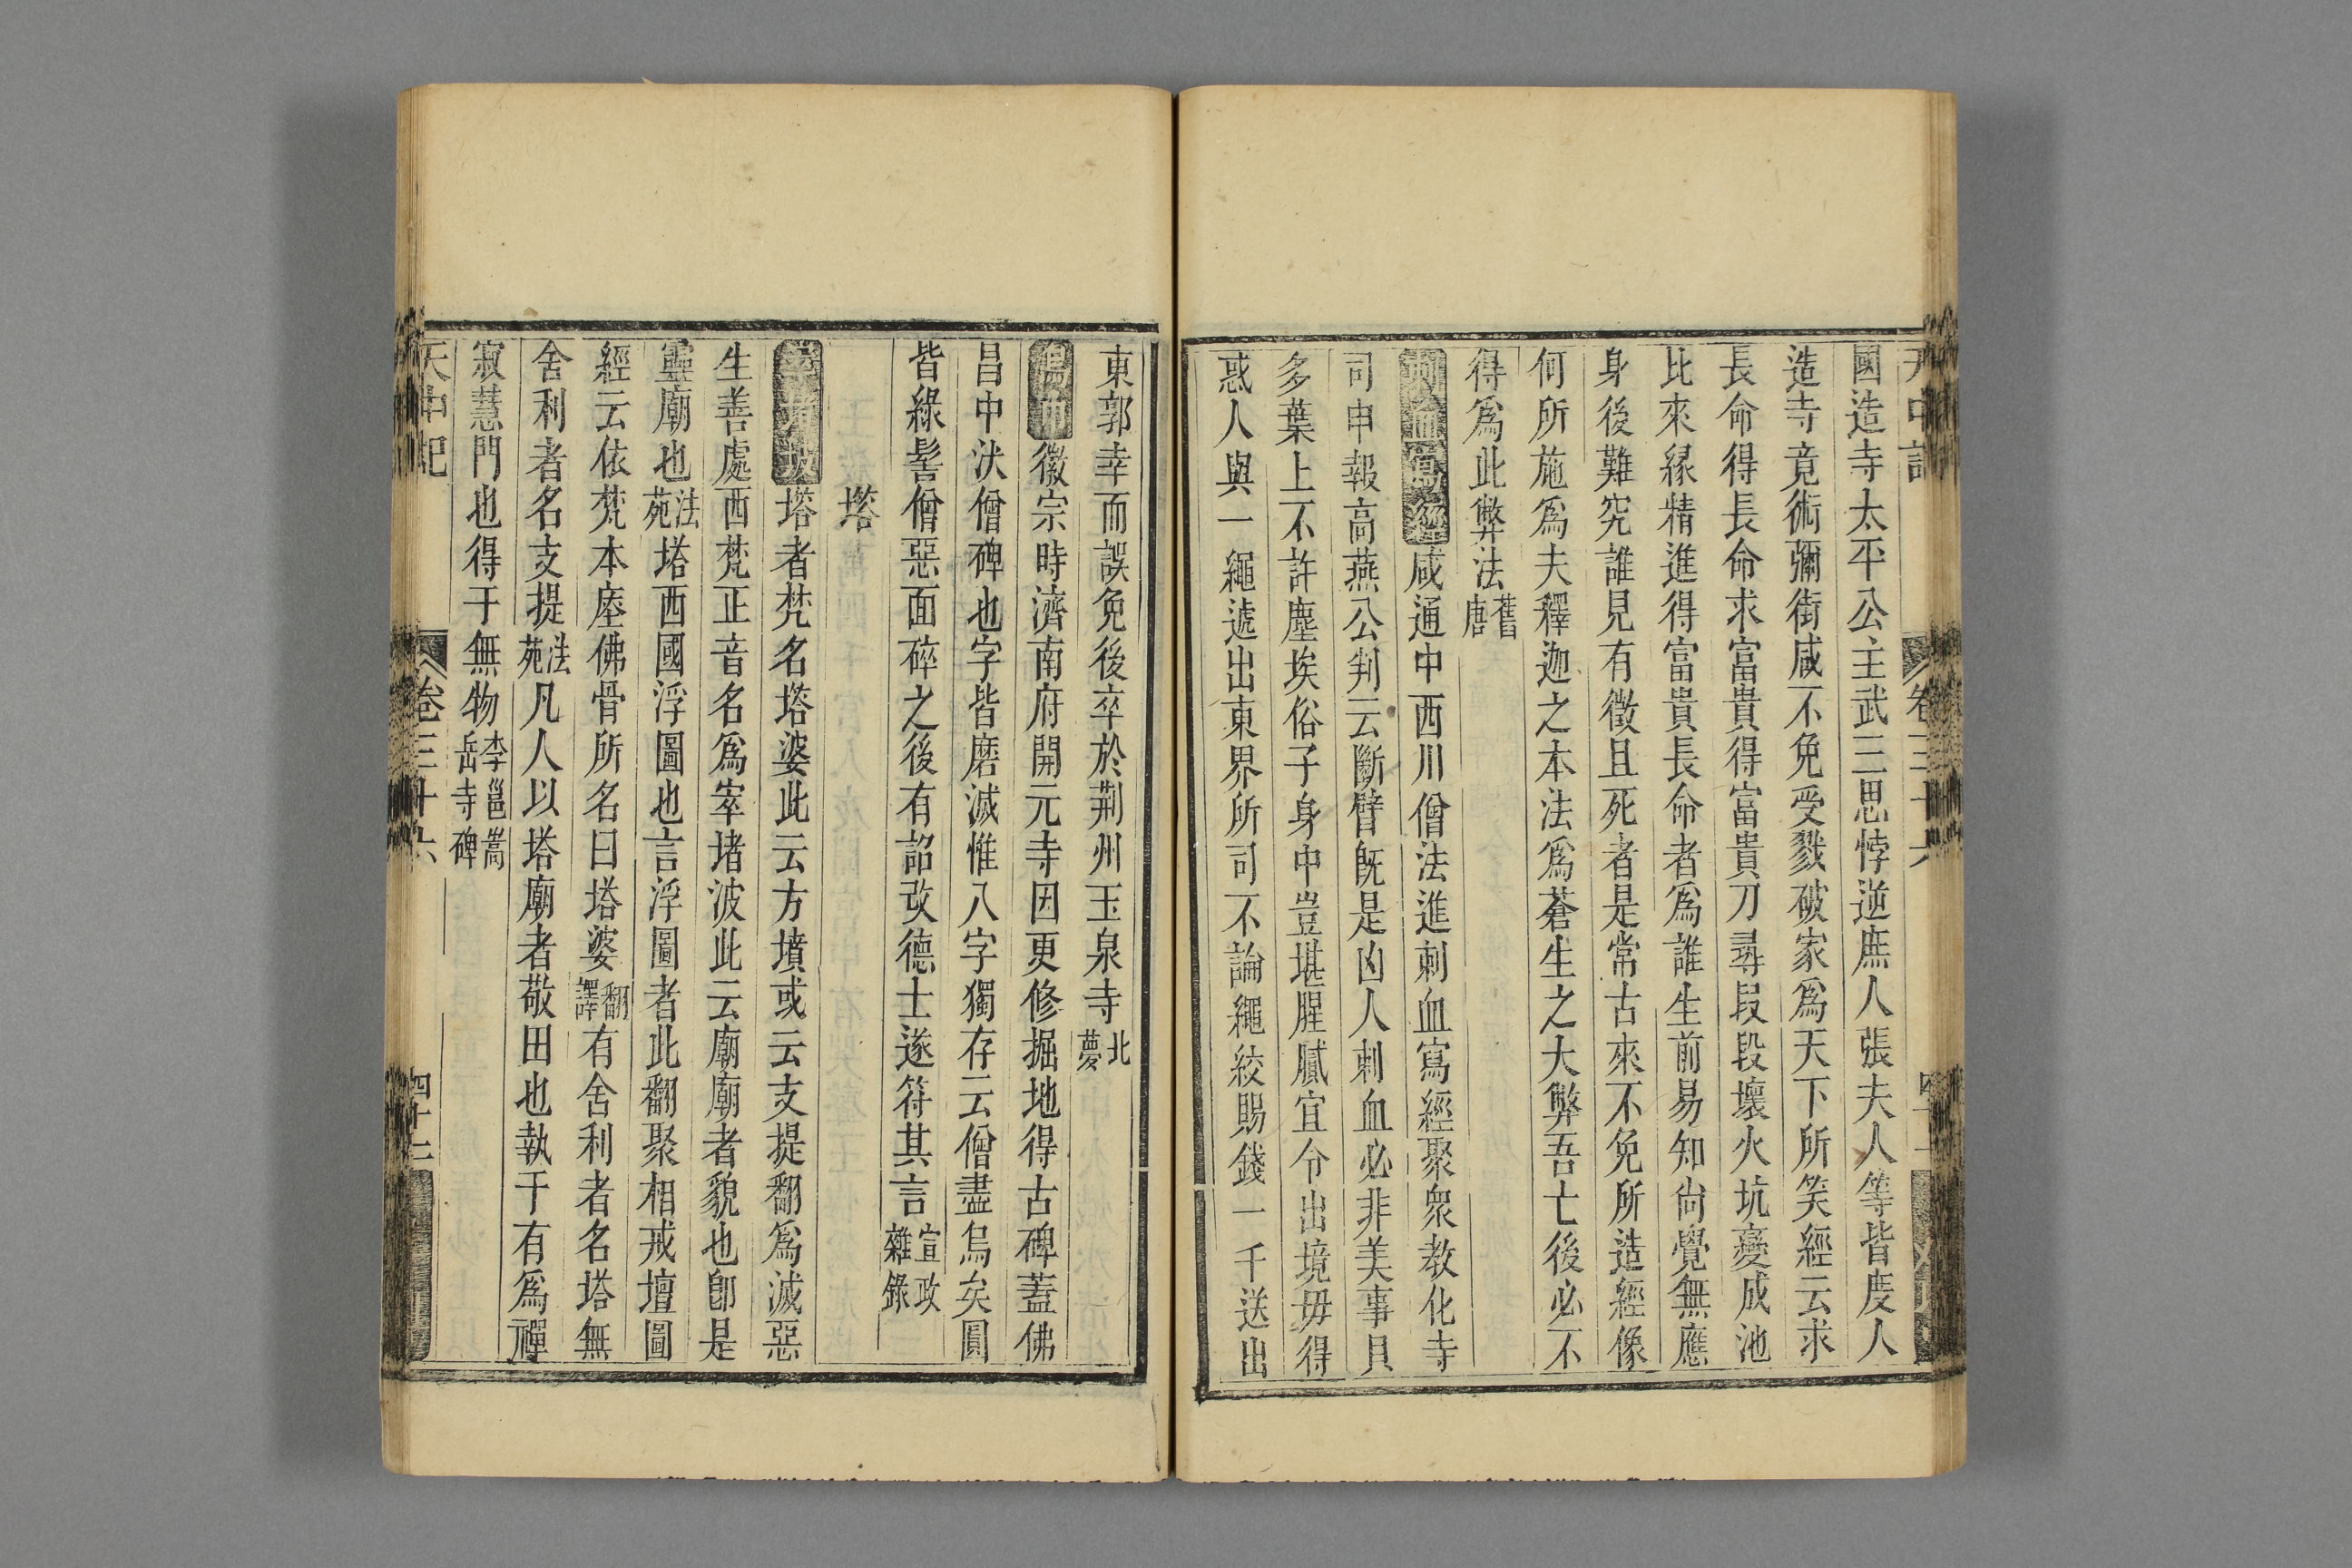 天中記 卷三十六
國造寺太平公主武三思悖逆庶人張夫人等皆度人
造寺竟術彌街咸不免受戮破家爲天下所笑經云求
長命得長命求富貴得富貴刀尋段段壞火坑變成池
比來緣精進得富貴長命者爲誰生前易知尙覺無應
身後難究誰見有徵且死者是常古來不免所造經像
何所施爲夫釋迦之本法爲蒼生之大弊吾亡後必不
得爲此弊法舊唐
刺血寫經咸通中西川僧法進刺血寫經聚衆教化寺
司申報高燕公判云斷臂旣是凶人刺血必非美事貝
多葉上不許塵埃俗子身中豈堪腥膩宜令出境毋得
惑人與一繩遞出東界所司不論繩絞賜錢一千送出
東郭幸而誤免後卒於荆州玉泉寺北夢
徽宗時濟南府開元寺因更修掘地得古碑蓋佛
昌中汏僧碑也字皆磨滅惟八字獨存云僧盡烏矣圓
皆綠髻僧惡面碎之後有詔改德士遂符其言宣政雜錄
塔
窣堵波塔者梵名塔婆此云方墳或云支提翻爲滅惡
生善處西梵正音名爲窣堵波此云廟廟者貌也卽是
靈廟也法苑塔西國浮圖也言浮圖者此翻聚相戒壇圖
經云依梵本瘞佛骨所名曰塔婆翻譯有舍利者名塔無
舍利者名支提法苑凡人以塔廟者敬田也執于有爲禪
寂慧門也得于無物李邕嵩岳寺碑
天中記 卷三十六 四十二